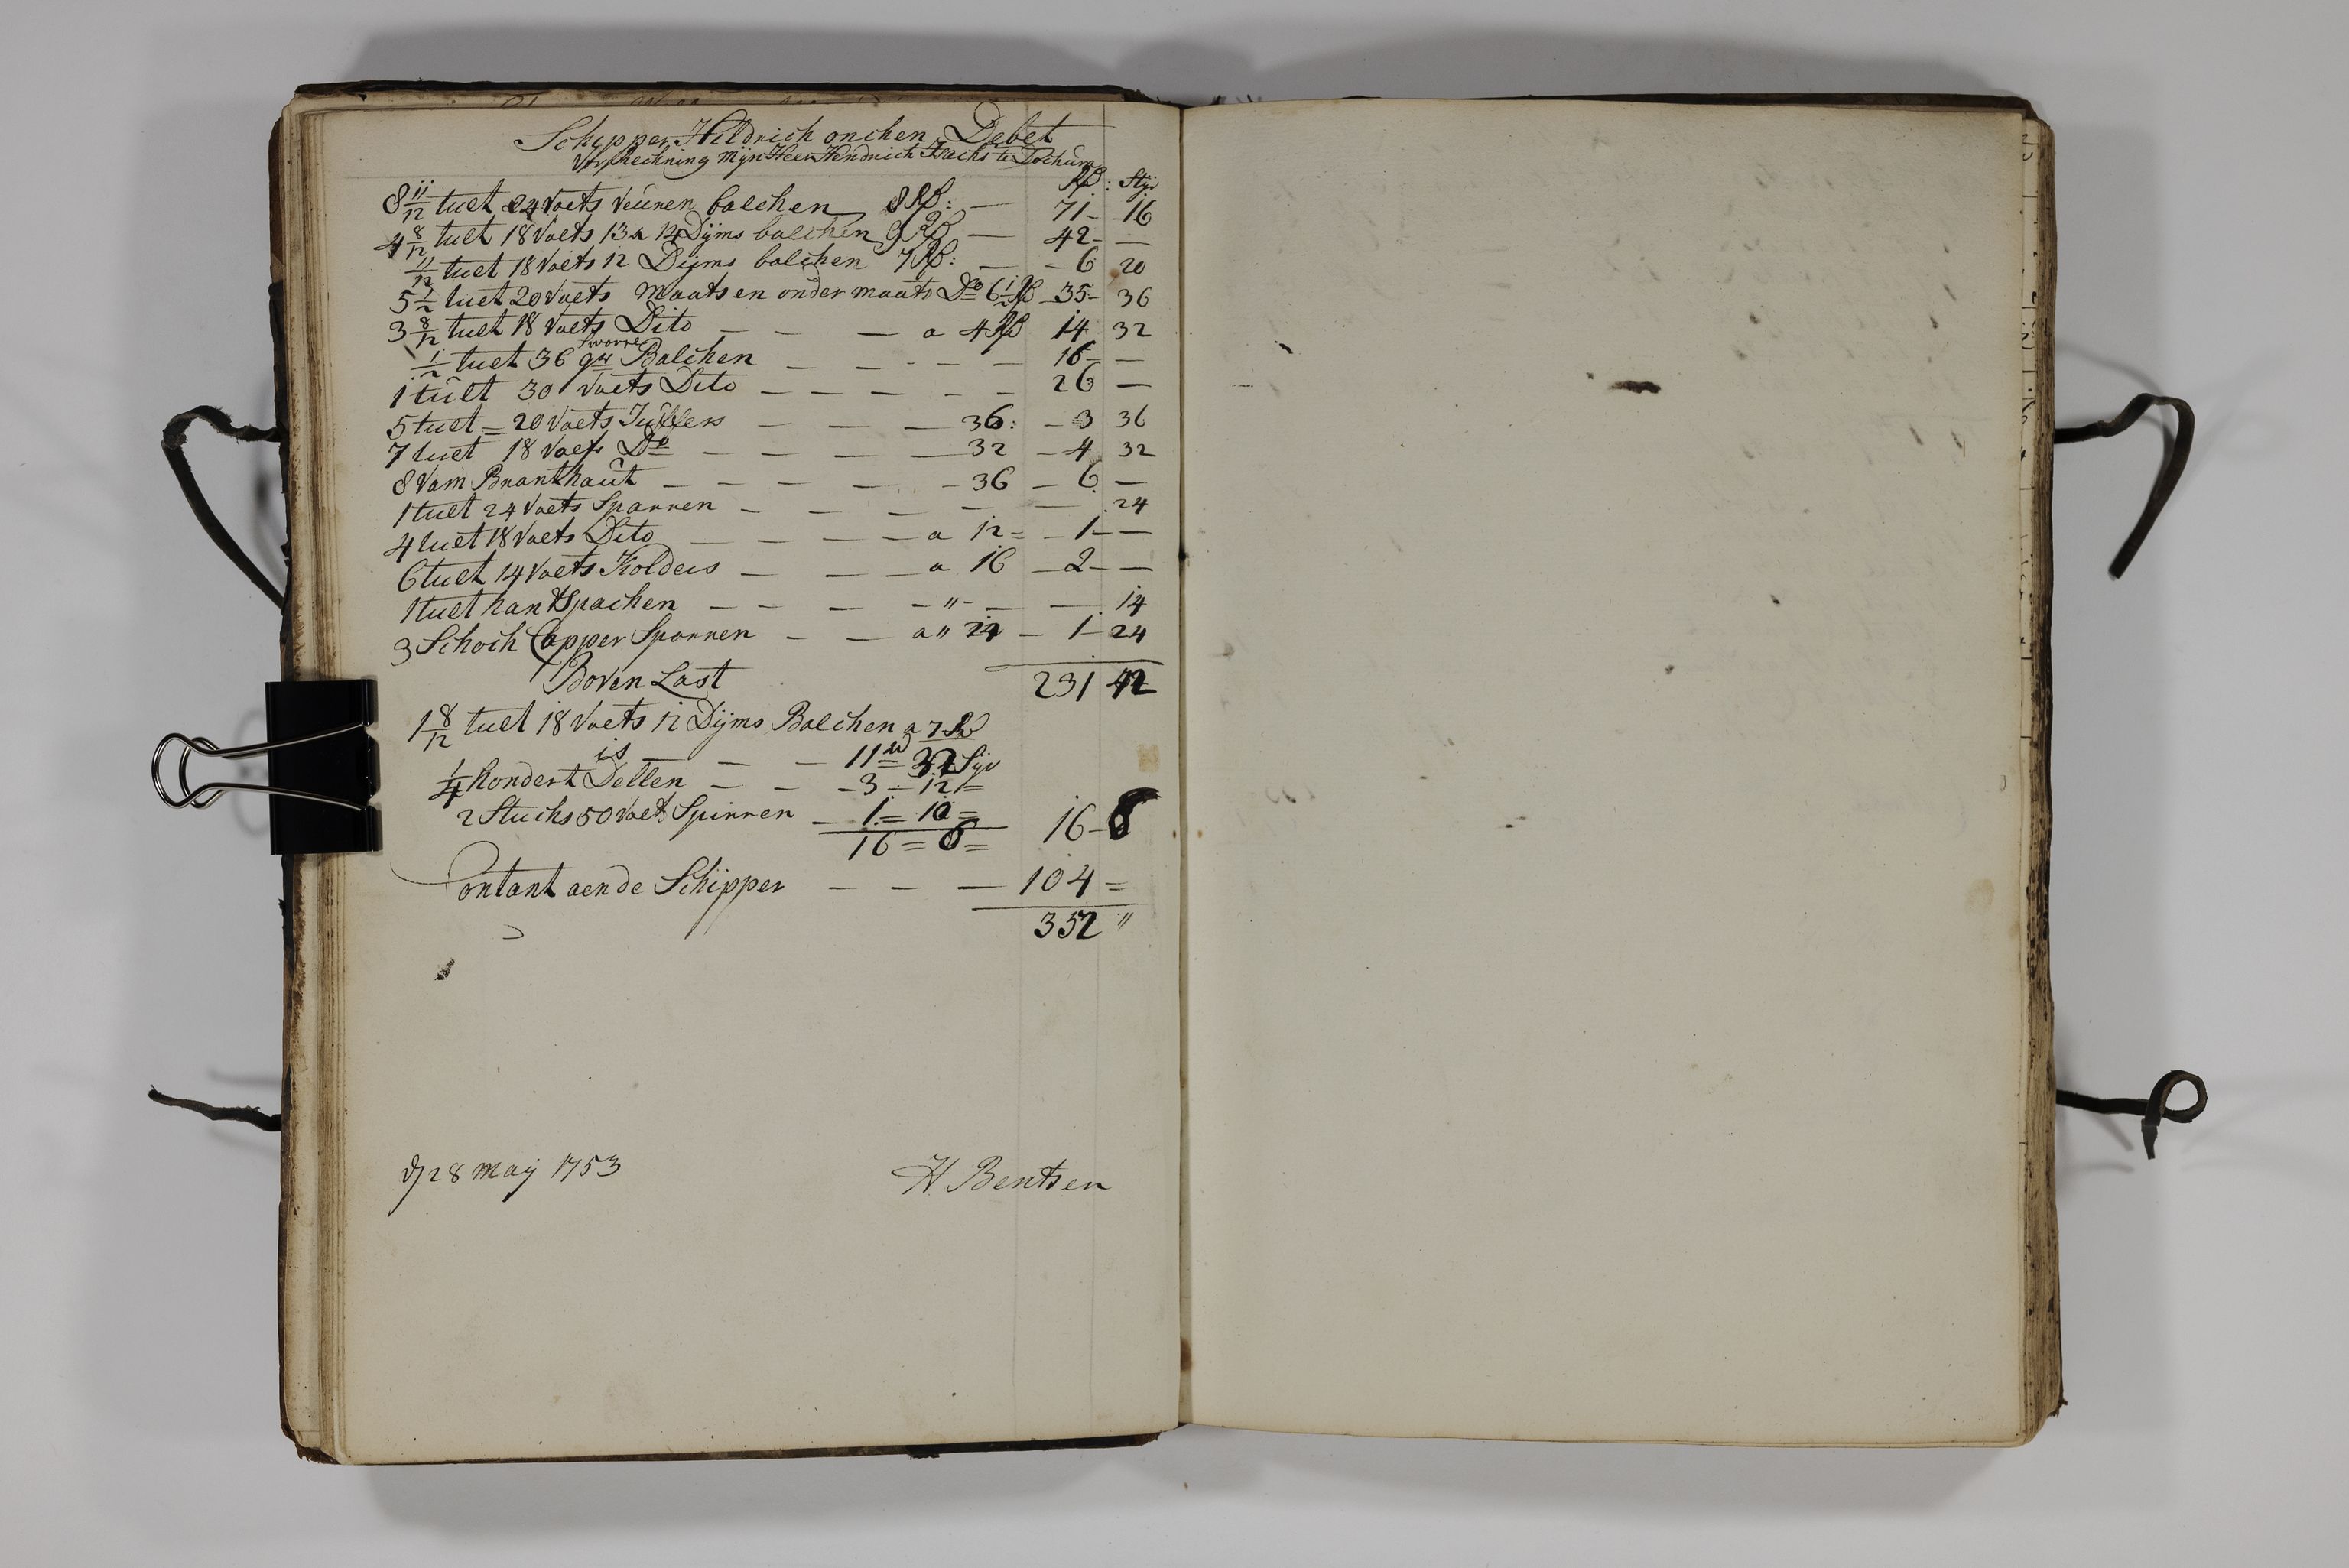 Schipper Hildrich onchen Debet
Vor Rechning Mijn Heer Hendrich
Rd: Styv
8 11/12 tuet 24 Voets Veuren balchen 8 Rd: — 71 - 16
4 8/12 tuet 18 Voets 13 a 14 Dijms balchen 9 Rd — 42 - —
11/12 tuet 18 Voets 12 Dijms balchen 7 Rd: — - 6 20
5 1/2 tuet 20 Voets Maats en onder maats Do 6 1/2 Rd - 35 - 36
3 8/12 tuet 18 Voets Dito — — — a 4 Rd 14 32
1/2 tuet 36 Balchen — — - - - — 16 - —
1 tuet 30 Voets Dito — — — — - - 26 —
5 tuet = 20 Voets Juffers — — — — 36: - 3 36
7 tuet 18 Voets Do — — — — 32 - 4 32
8 Vam Branthaut — — — — - - 36 — 6 —
1 tuet 24 Voets Sparren — — — — — — 24
4 tuet 18 Voets Dito — — — — a 12 = - 1 - —
6 tuet 14 Voets Kolders — — — a 16 — 2 - —
1 tuet hantspachen — — — - " - — — 14
3 Schoch Capper Sparren — — a " 24 — 1 - 24
Boven Last 231 42
1 8/12 tuet 18 Voets 12 Dijms Balchen a 7 Rd
is — — — 11 Rd = 32 Syv
1/4 hondert Dellen — — - 3 - 12 =
2 Stuchs 50 Voet Spirren — 1 = 10 = 16 - 6
16 = 6 =
Contant aen de Schipper — — — 104 =
352 "
d 28 Maij 1753 H Bentsen